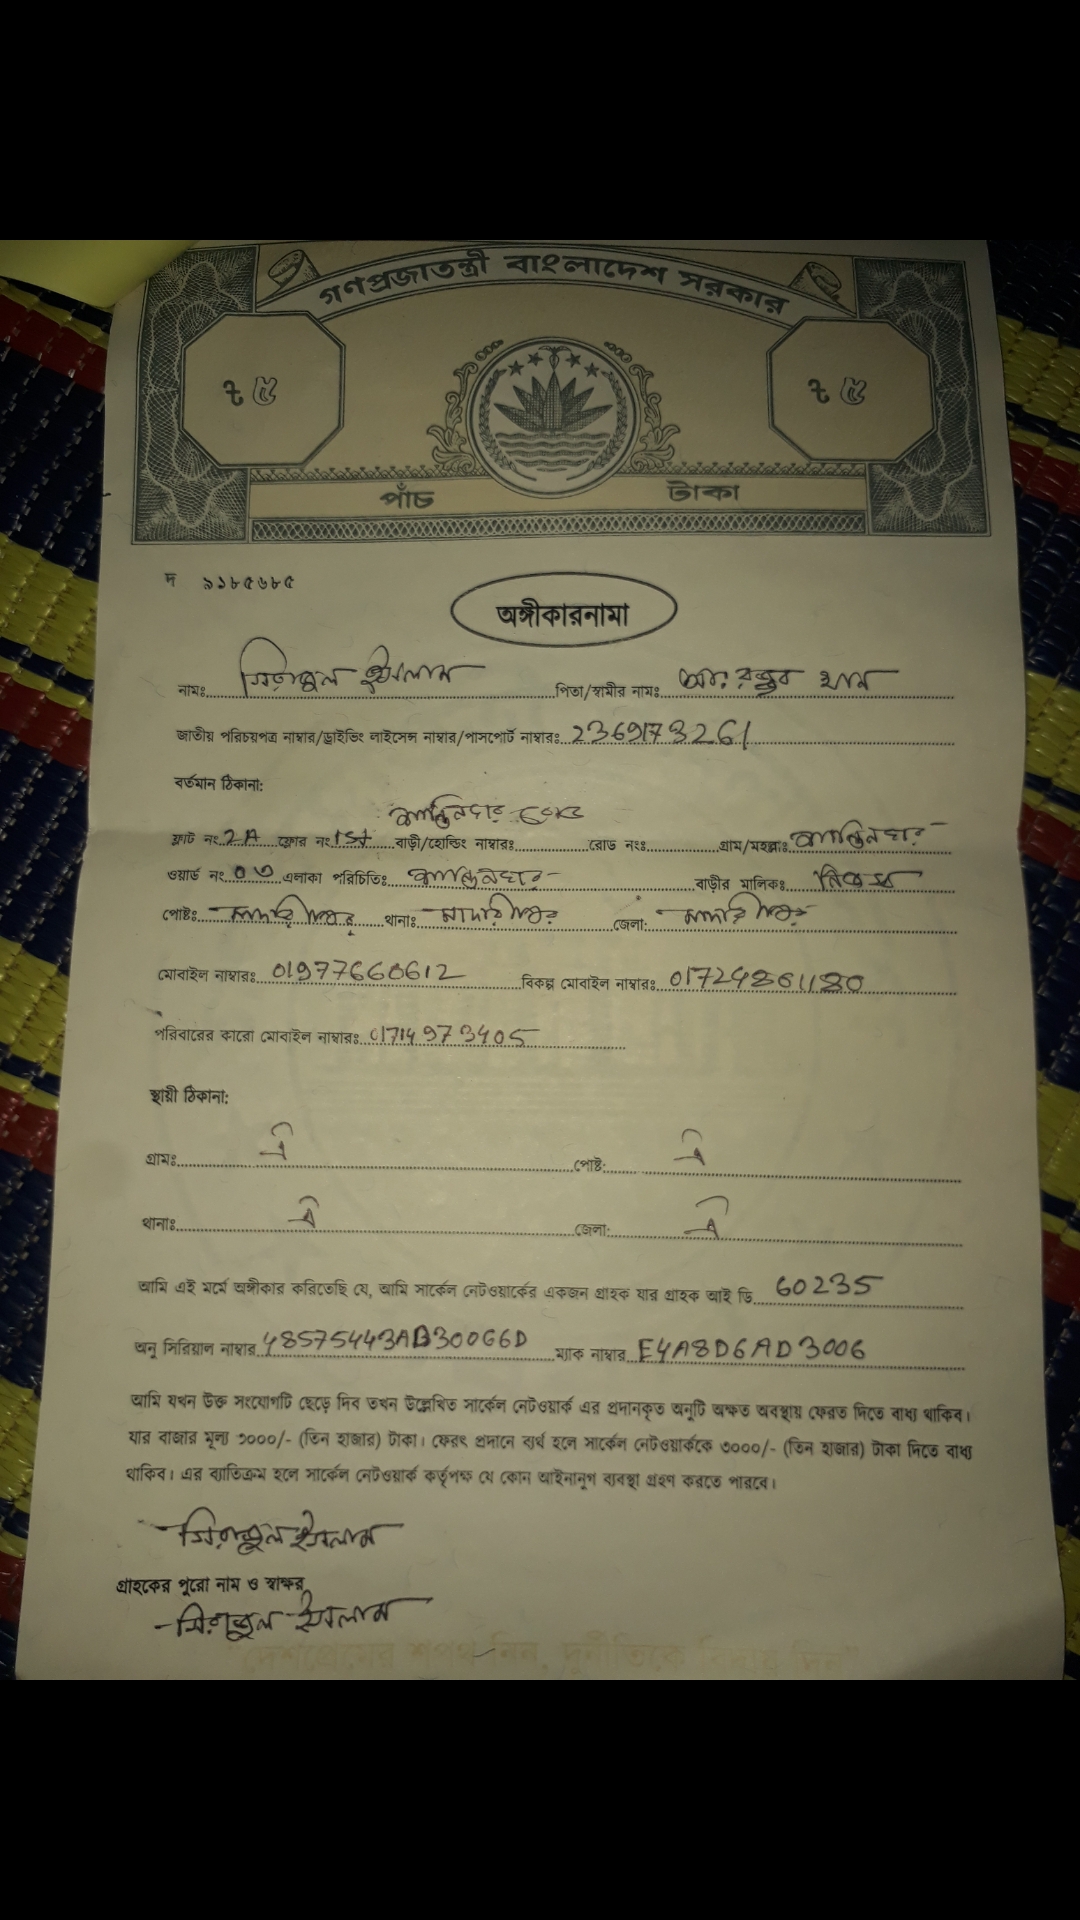 গণপ্রজাতন্ত্রী বাংলাদেশ সরকার
৳ ৫ ৳ ৫
পাঁচ টাকা
দ ৯১৮৫৬৮৫
অঙ্গীকারনামা
নামঃ সিরাজুল ইসলাম পিতা/স্বামীর নামঃ খান
জাতীয় পরিচয়পত্র নাম্বার/ড্রাইভিং লাইসেন্স নাম্বার/পাসপোর্ট নাম্বারঃ 2369173261
বর্তমান ঠিকানা:
ফ্লাট নং 2A ফ্লোর নং 1st বাড়ী/হোল্ডিং নাম্বারঃ রোড নংঃ গ্রাম/মহল্লাঃ
ওয়ার্ড নং ০৩ এলাকা পরিচিতিঃ বাড়ীর মালিকঃ নিজস্ব
পোষ্টঃ মাদারীপুর থানাঃ মাদারীপুর জেলা: মাদারীপুর
মোবাইল নাম্বারঃ 01977660612 বিকল্প মোবাইল নাম্বারঃ
পরিবারের কারো মোবাইল নাম্বারঃ 01714973405
স্থায়ী ঠিকানা:
গ্রামঃ ঐ পোষ্ট: ঐ
থানাঃ ঐ জেলা: ঐ
আমি এই মর্মে অঙ্গীকার করিতেছি যে, আমি সার্কেল নেটওয়ার্কের একজন গ্রাহক যার গ্রাহক আই ডি 60235
অনু সিরিয়াল নাম্বার ম্যাক নাম্বার E4A8D6AD3006
আমি যখন উক্ত সংযোগটি ছেড়ে দিব তখন উল্লেখিত সার্কেল নেটওয়ার্ক এর প্রদানকৃত অনুটি অক্ষত অবস্থায় ফেরত দিতে বাধ্য থাকিব।
যার বাজার মূল্য ৩০০০/- (তিন হাজার) টাকা। ফেরৎ প্রদানে ব্যর্থ হলে সার্কেল নেটওয়ার্ককে ৩০০০/- (তিন হাজার) টাকা দিতে বাধ্য
থাকিব। এর ব্যাতিক্রম হলে সার্কেল নেটওয়ার্ক কর্তৃপক্ষ যে কোন আইনানুগ ব্যবস্থা গ্রহণ করতে পারবে।
সিরাজুল ইসলাম
গ্রাহকের পুরো নাম ও স্বাক্ষর
সিরাজুল ইসলাম
"দেশপ্রেমের শপথ নিন, দুর্নীতিকে বিদায় দিন"